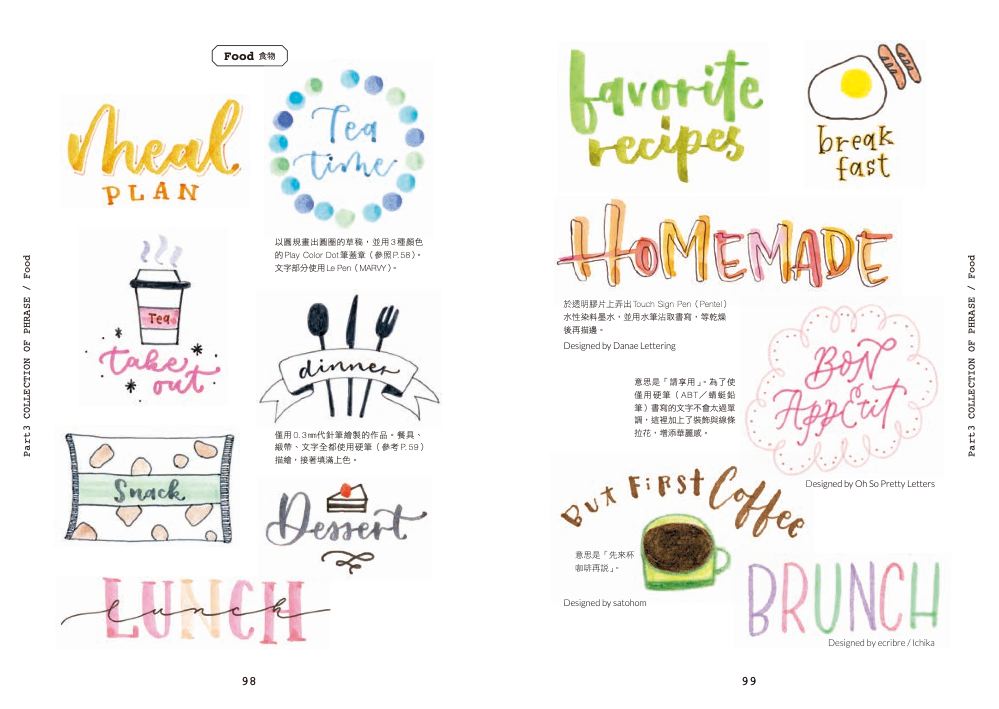 Food 食物
meal
PLAN
Tea
time
以圓規畫出圓圈的草稿，並用3種顏色
的Play Color Dot筆蓋章（參照P.58）。
文字部分使用Le Pen（MARVY）。
Tea
take
out
dinner
僅用0.3mm代針筆繪製的作品。餐具、
緞帶、文字全都使用硬筆（參考P.59）
描繪，接著填滿上色。
Snack
Dessert
LUNCH
lunch
Part3 COLLECTION OF PHRASE / Food
98
favorite
recipes
break
fast
HOMEMADE
於透明膠片上弄出Touch Sign Pen（Pentel）
水性染料墨水，並用水筆沾取書寫，等乾燥
後再描邊。
Designed by Danae Lettering
BON
APPétit
意思是「請享用」。為了使
僅用硬筆（ABT／蜻蜓鉛
筆）書寫的文字不會太過單
調，這裡加上了裝飾與線條
拉花，增添華麗感。
Designed by Oh So Pretty Letters
BUT FIRST Coffee
意思是「先來杯
咖啡再說」。
Designed by satohom
BRUNCH
Designed by ecribre / Ichika
Part3 COLLECTION OF PHRASE / Food
99